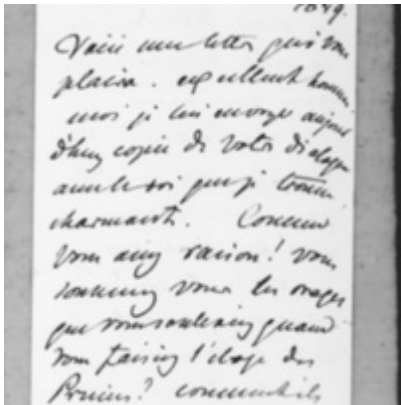 1849.
Voici une lettre qui vous
plaira. excellent homme
moi je lui envoye aujour
d'huy copie de votre dialogue
avec le roi que je trouve
charmante. Comme
vous avez raison! vous
vous les orages
que vous souleviez quand
vous faisiez l'éloge des
? comment ils